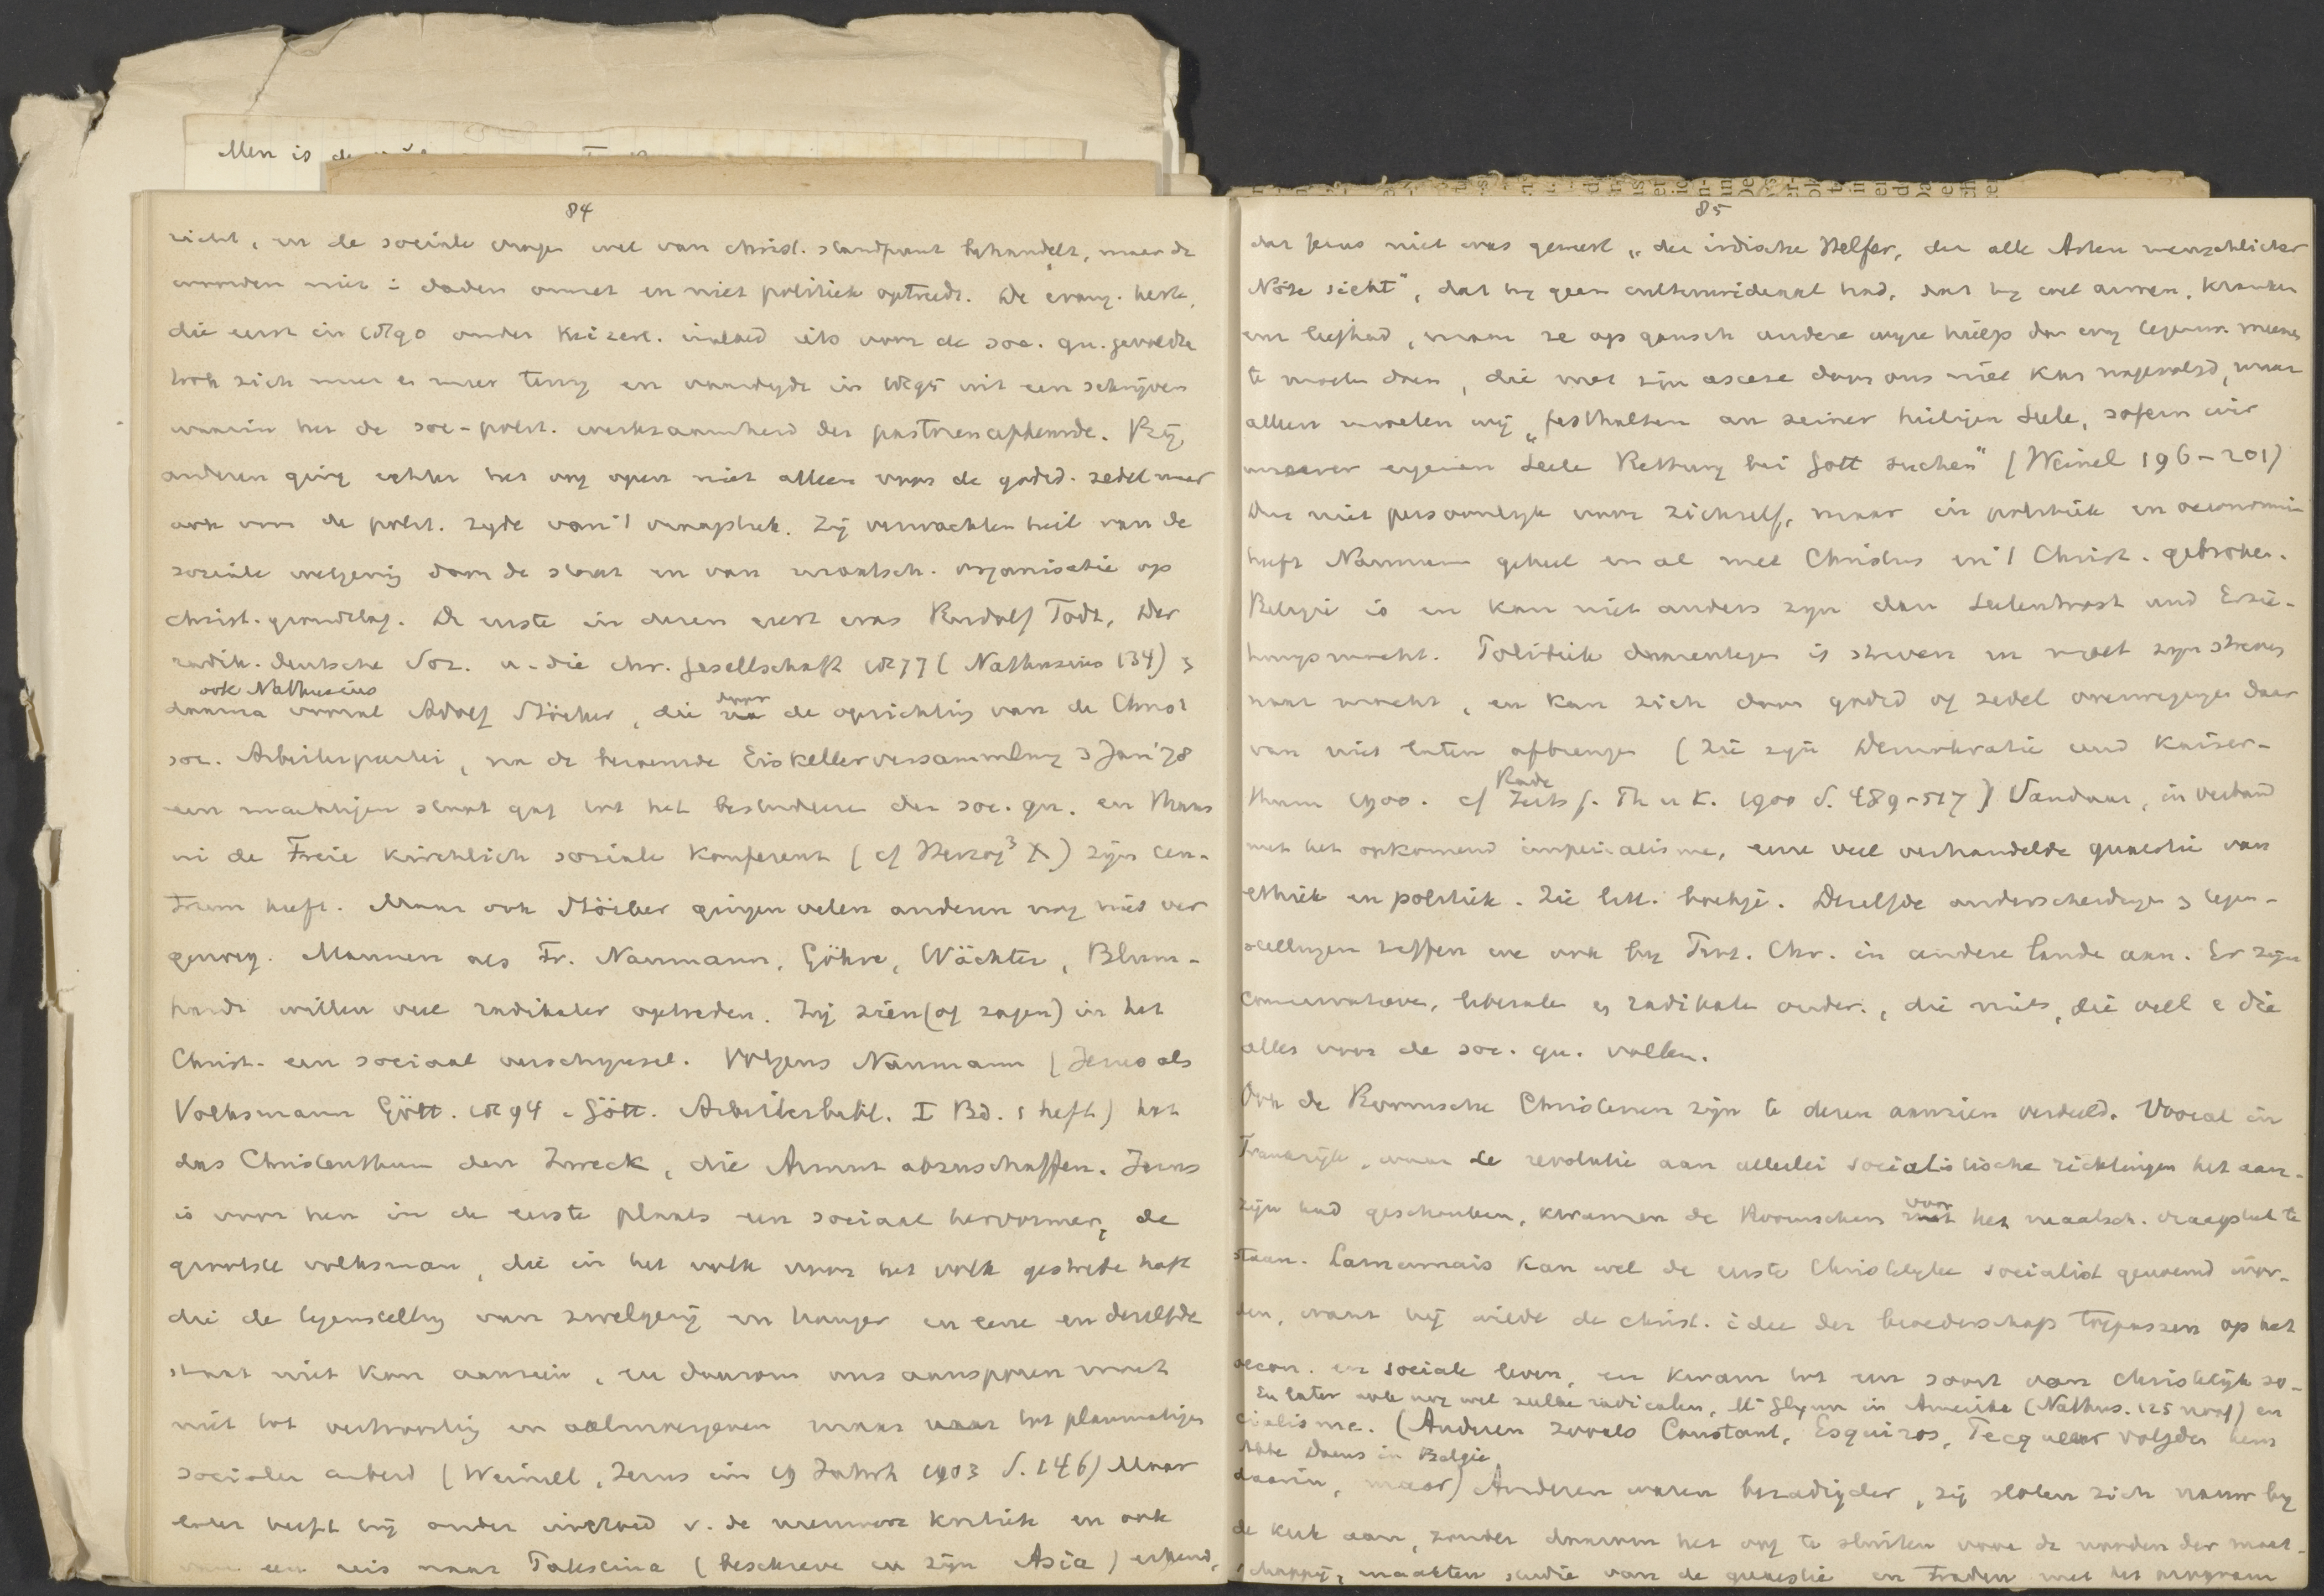 Men is
84
richt, en de sociale vragen wel van christ. standpunt behandelt, maar de
woorden niet i daden omzet en niet politiek optreedt. De evang. kerk,
die eerst in 1890 onder keizerl. invloed iets voor de soc. qu. gevoelde
trok zich meer en meer terug en vaardigde in 1895 uit een schrijven
waarin het de soc-polit. werkzaamheid der pastoren afkeurde. Bij
anderen ging echter het oog open niet alleen voor de godsd. zedel maar
ook voor de polit. zijde van 't vraagstuk. Zij verwachten heil van de
sociale wetgeving door de staat en van maatsch. organisatie op
christ. grondslag. De eerste in dezen geest was Rudolf Todt, Der
radik. deutsche Soz. u. die chr. Gesellschaft 1877 (Nathusius 134) &
ook Nathusius
daarna vooral Adolf Stöcker, die door de oprichting van de Christ
soc. Arbeiterpartei, na de beroemde Eiskellerversammlung 3 Jan '78
een machtigen stoot gaf tot het bestudeeren der soc. qu. en thans
in de Freie kirchlich soziale Konferenz (cf Herzog³ X) zijn cen-
trum heeft. Maar ook Stöcker gingen velen anderen nog niet ver
genoeg. Mannen als Fr. Naumann, Göhre, Wächter, Blum-
hardt willen veel radikaler optreden. Zij zien (of zagen) in het
Christ. een sociaal verschijnsel. Volgens Naumann (Jesus als
Volksmann Gött. 1894 = Gött. Arbeiterbibl. I Bd. 1 heft) hat
das Christenthum den Zweck, die Armut abzuschaffen. Jezus
is voor hen in de eerste plaats een sociaal hervormer, de
grootste volksman, die in het volk voor het volk gestreden heeft
die de tegenstelling van zwelgerij en honger in eene en dezelfde
staat niet kon aanzien, en daarom ons aansporen moet
niet tot vertroosting en aalmoesgeven maar tot planmatigen
socialen arbeid (Weinel, Jesus im 19 Jahrh 1903 S. 146) Maar
later heeft hij onder invloed v. de nieuwere kritiek en ook
van een reis naar Palestina (beschreven in zijn Asia) erkend,
85
dat Jezus niet was geweest „der irdische Helfer, der alle Arten menschlicher
Nöte sieht", dat hij geen cultuurideaal had, dat hij wel armen, kranken
enz liefhad, maar ze op gansch andere wijze hielp dan wij tegenw. meenen
te moeten doen, die met zijn ascese door ons niet kan nagevolgd, maar
alleen moeten wij „festhalten an seiner heiligen Seele, sofern wir
unserer eigenen Seele Rettung bei Gott suchen" (Weinel 196-201)
Dus niet persoonlijk voor zichzelf, maar in politiek en oeconomie
heeft Naumann geheel en al met Christus en 't Christ. gebroken.
Religie is en kan niet anders zijn dan Seelentrost und Erzie-
hungsmacht. Politiek daarentegen is streven en moet zijn streven
naar macht, en kan zich door godsd of zedel overwegingen daar
van niet laten afbrengen (zie zijn Demokratie und Kaiser-
thum 1900. cf Rade Zeits f. Th u K. 1900 S. 489-517) Vandaar, in verband
met het opkomend imperialisme, eene veel verhandelde quaestie van
ethiek en politiek. Zie litt. boekje. Dezelfde onderscheidingen & tegen-
stellingen treffen we ook bij Prot. Chr. in andere landen aan. Er zijn
Conservatieve, liberale en radikale onder, die niets, die veel & die
alles voor de soc. qu. voelen.
Ook de Roomsche Christenen zijn te dezen aanzien verdeeld. Vooral in
Frankrijk, waar de revolutie aan allerlei socialistische richtingen het aan-
zijn had geschonken, kwamen de Roomschen voor het maatsch. vraagstuk te
staan. Lamennais kan wel de eerste Christelijke socialist genoemd wor-
den, want hij wilde de christ. idee der broederschap toepassen op het
oecon. en sociale leven, en kwam tot een soort van christelijk so-
En later ook nog wel zulke radicalen, Mc Glynn in Amerika (Nathus. 125 noot) en
cialisme. (Anderen zooals Constant, Esquiros, volgden hem
Abbé Daens in België
daarin, maar) Anderen waren bezadigder, zij sloten zich nauw bij
de kerk aan, zonder daarom het oog te sluiten voor de nooden der maat-
schappij, maakten studie van de quaestie en traden met het program